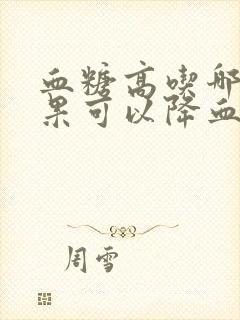 血糖高喫哪
果可以降血
周雪